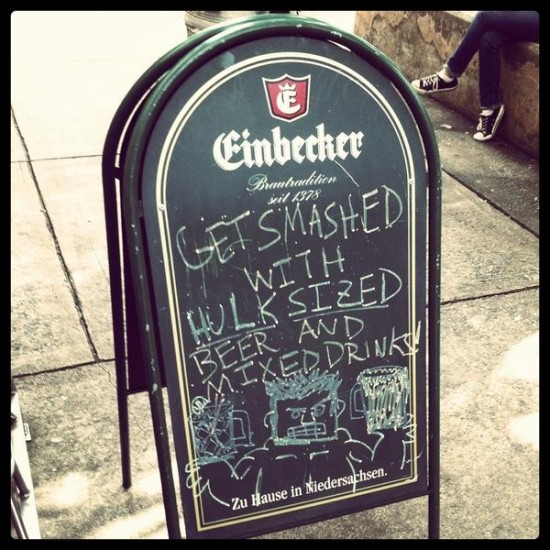 E
Einbecker
Brautradition
seit 1378
GET SMASHED
WITH
HULK SIZED
BEER AND
MIXED DRINKS!
Zu Hause in Niedersachsen.